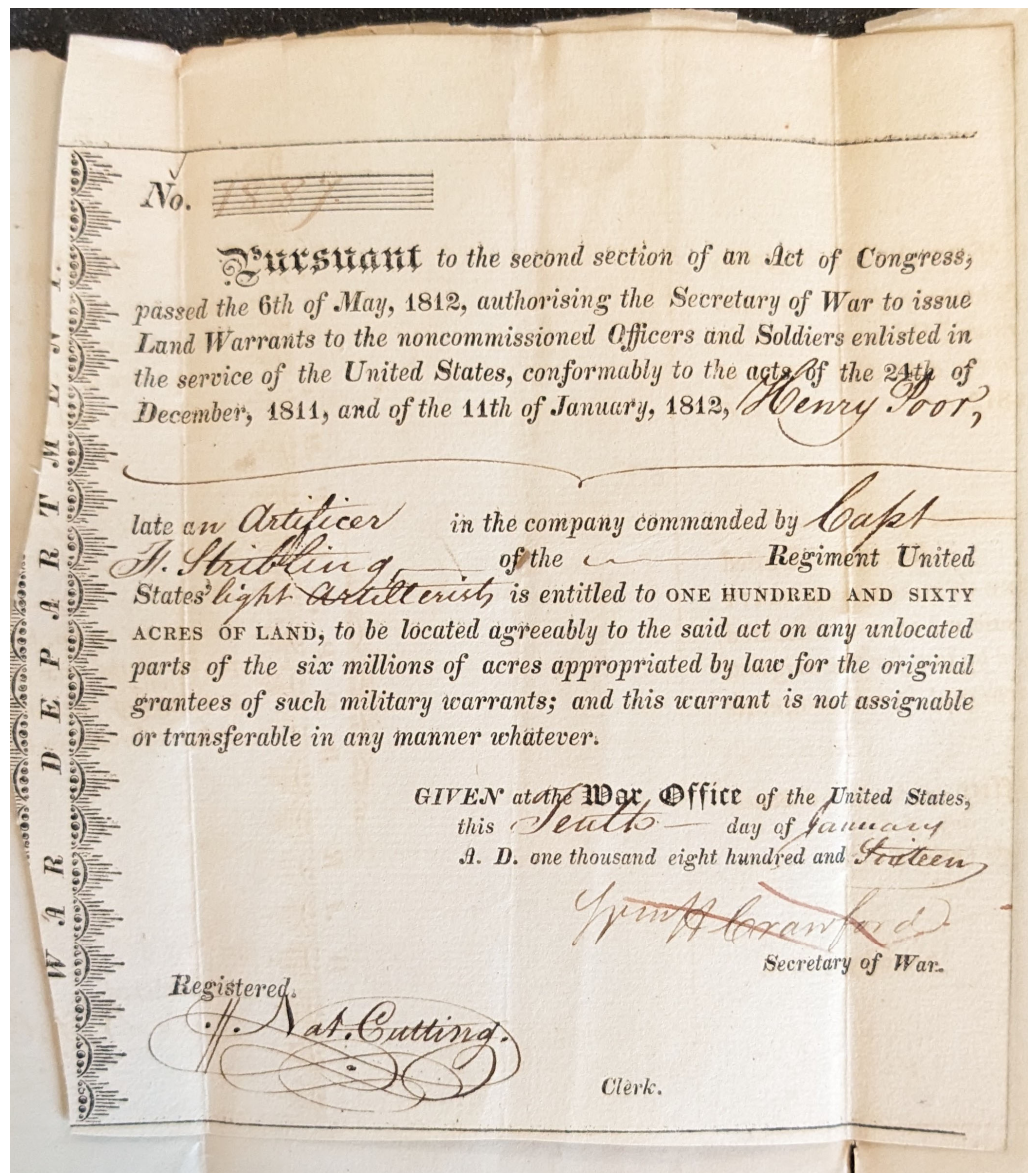 No. 1887.
Pursuant to the second section of an Act of Congress,
passed the 6th of May, 1812, authorising the Secretary of War to issue
Land Warrants to the noncommissioned Officers and Soldiers enlisted in
the service of the United States, conformably to the acts of the 24th of
December, 1811, and of the 11th of January, 1812, Henry Poor,
late an Artificer in the company commanded by Capt
F. Stribling of the Regiment United
States' light Artillerists is entitled to ONE HUNDRED AND SIXTY
ACRES OF LAND, to be located agreeably to the said act on any unlocated
parts of the six millions of acres appropriated by law for the original
grantees of such military warrants; and this warrant is not assignable
or transferable in any manner whatever.
GIVEN at the War Office of the United States,
this Tenth day of January
A. D. one thousand eight hundred and Sixteen
Wm H Crawford
Secretary of War.
Registered.
Nat. Cutting.
Clerk.
WAR DEPARTMENT.